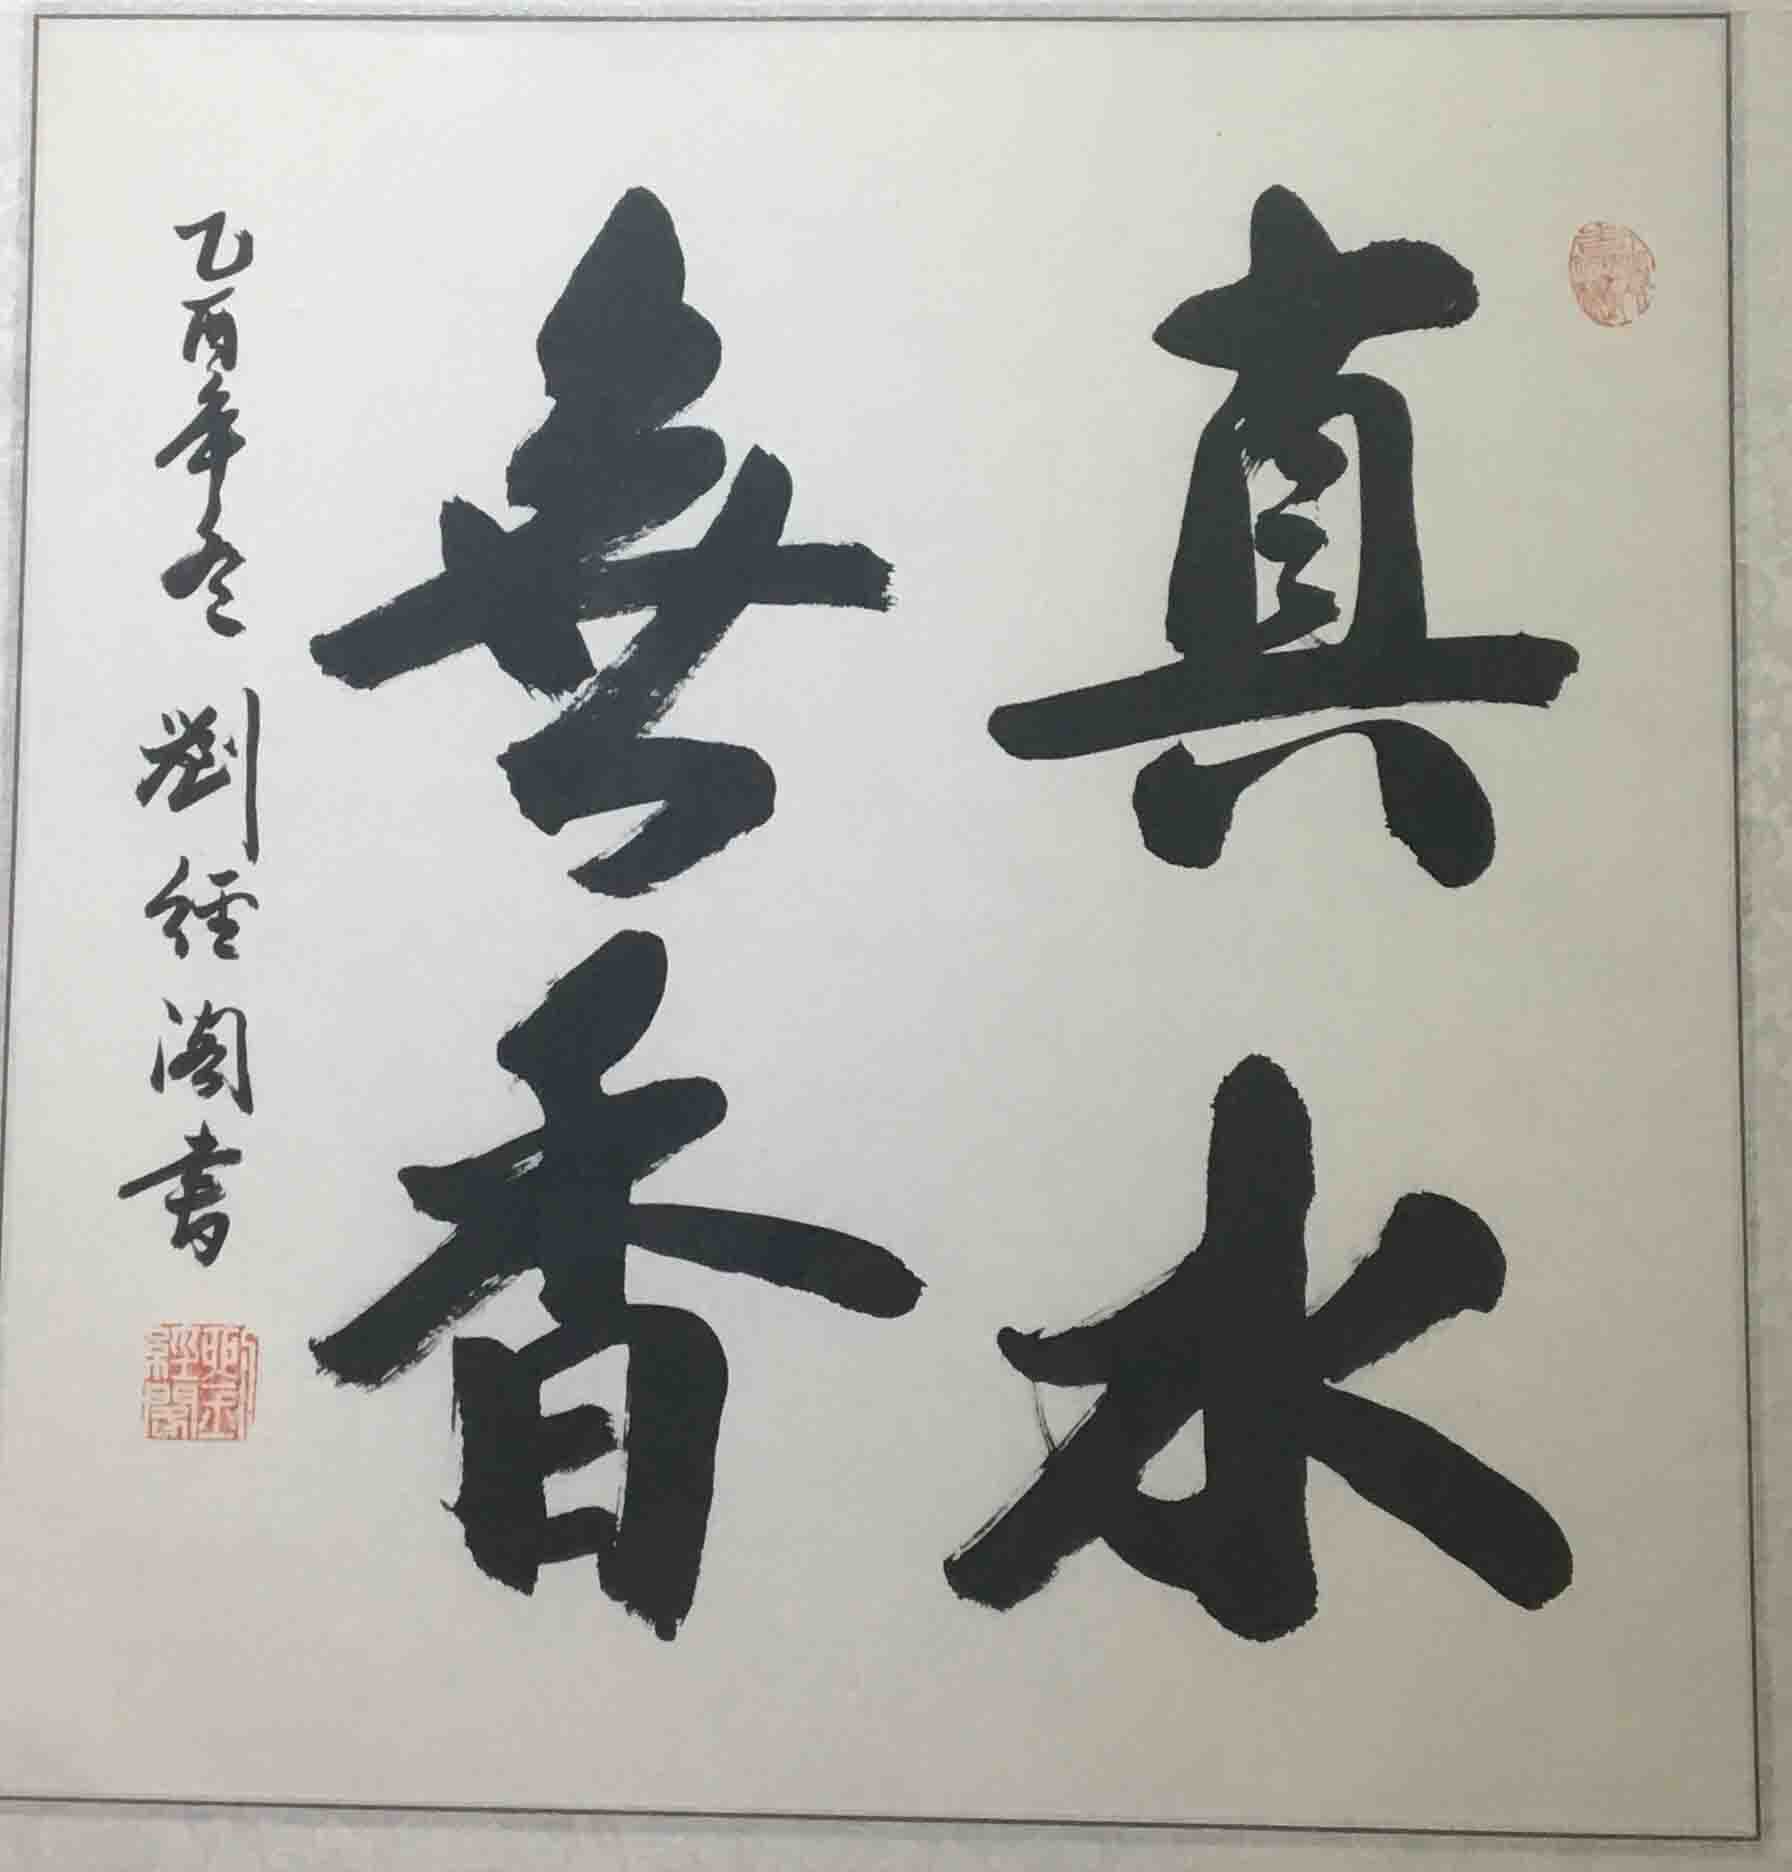 真水
無香
乙酉年冬 劉經阁書
劉經閣